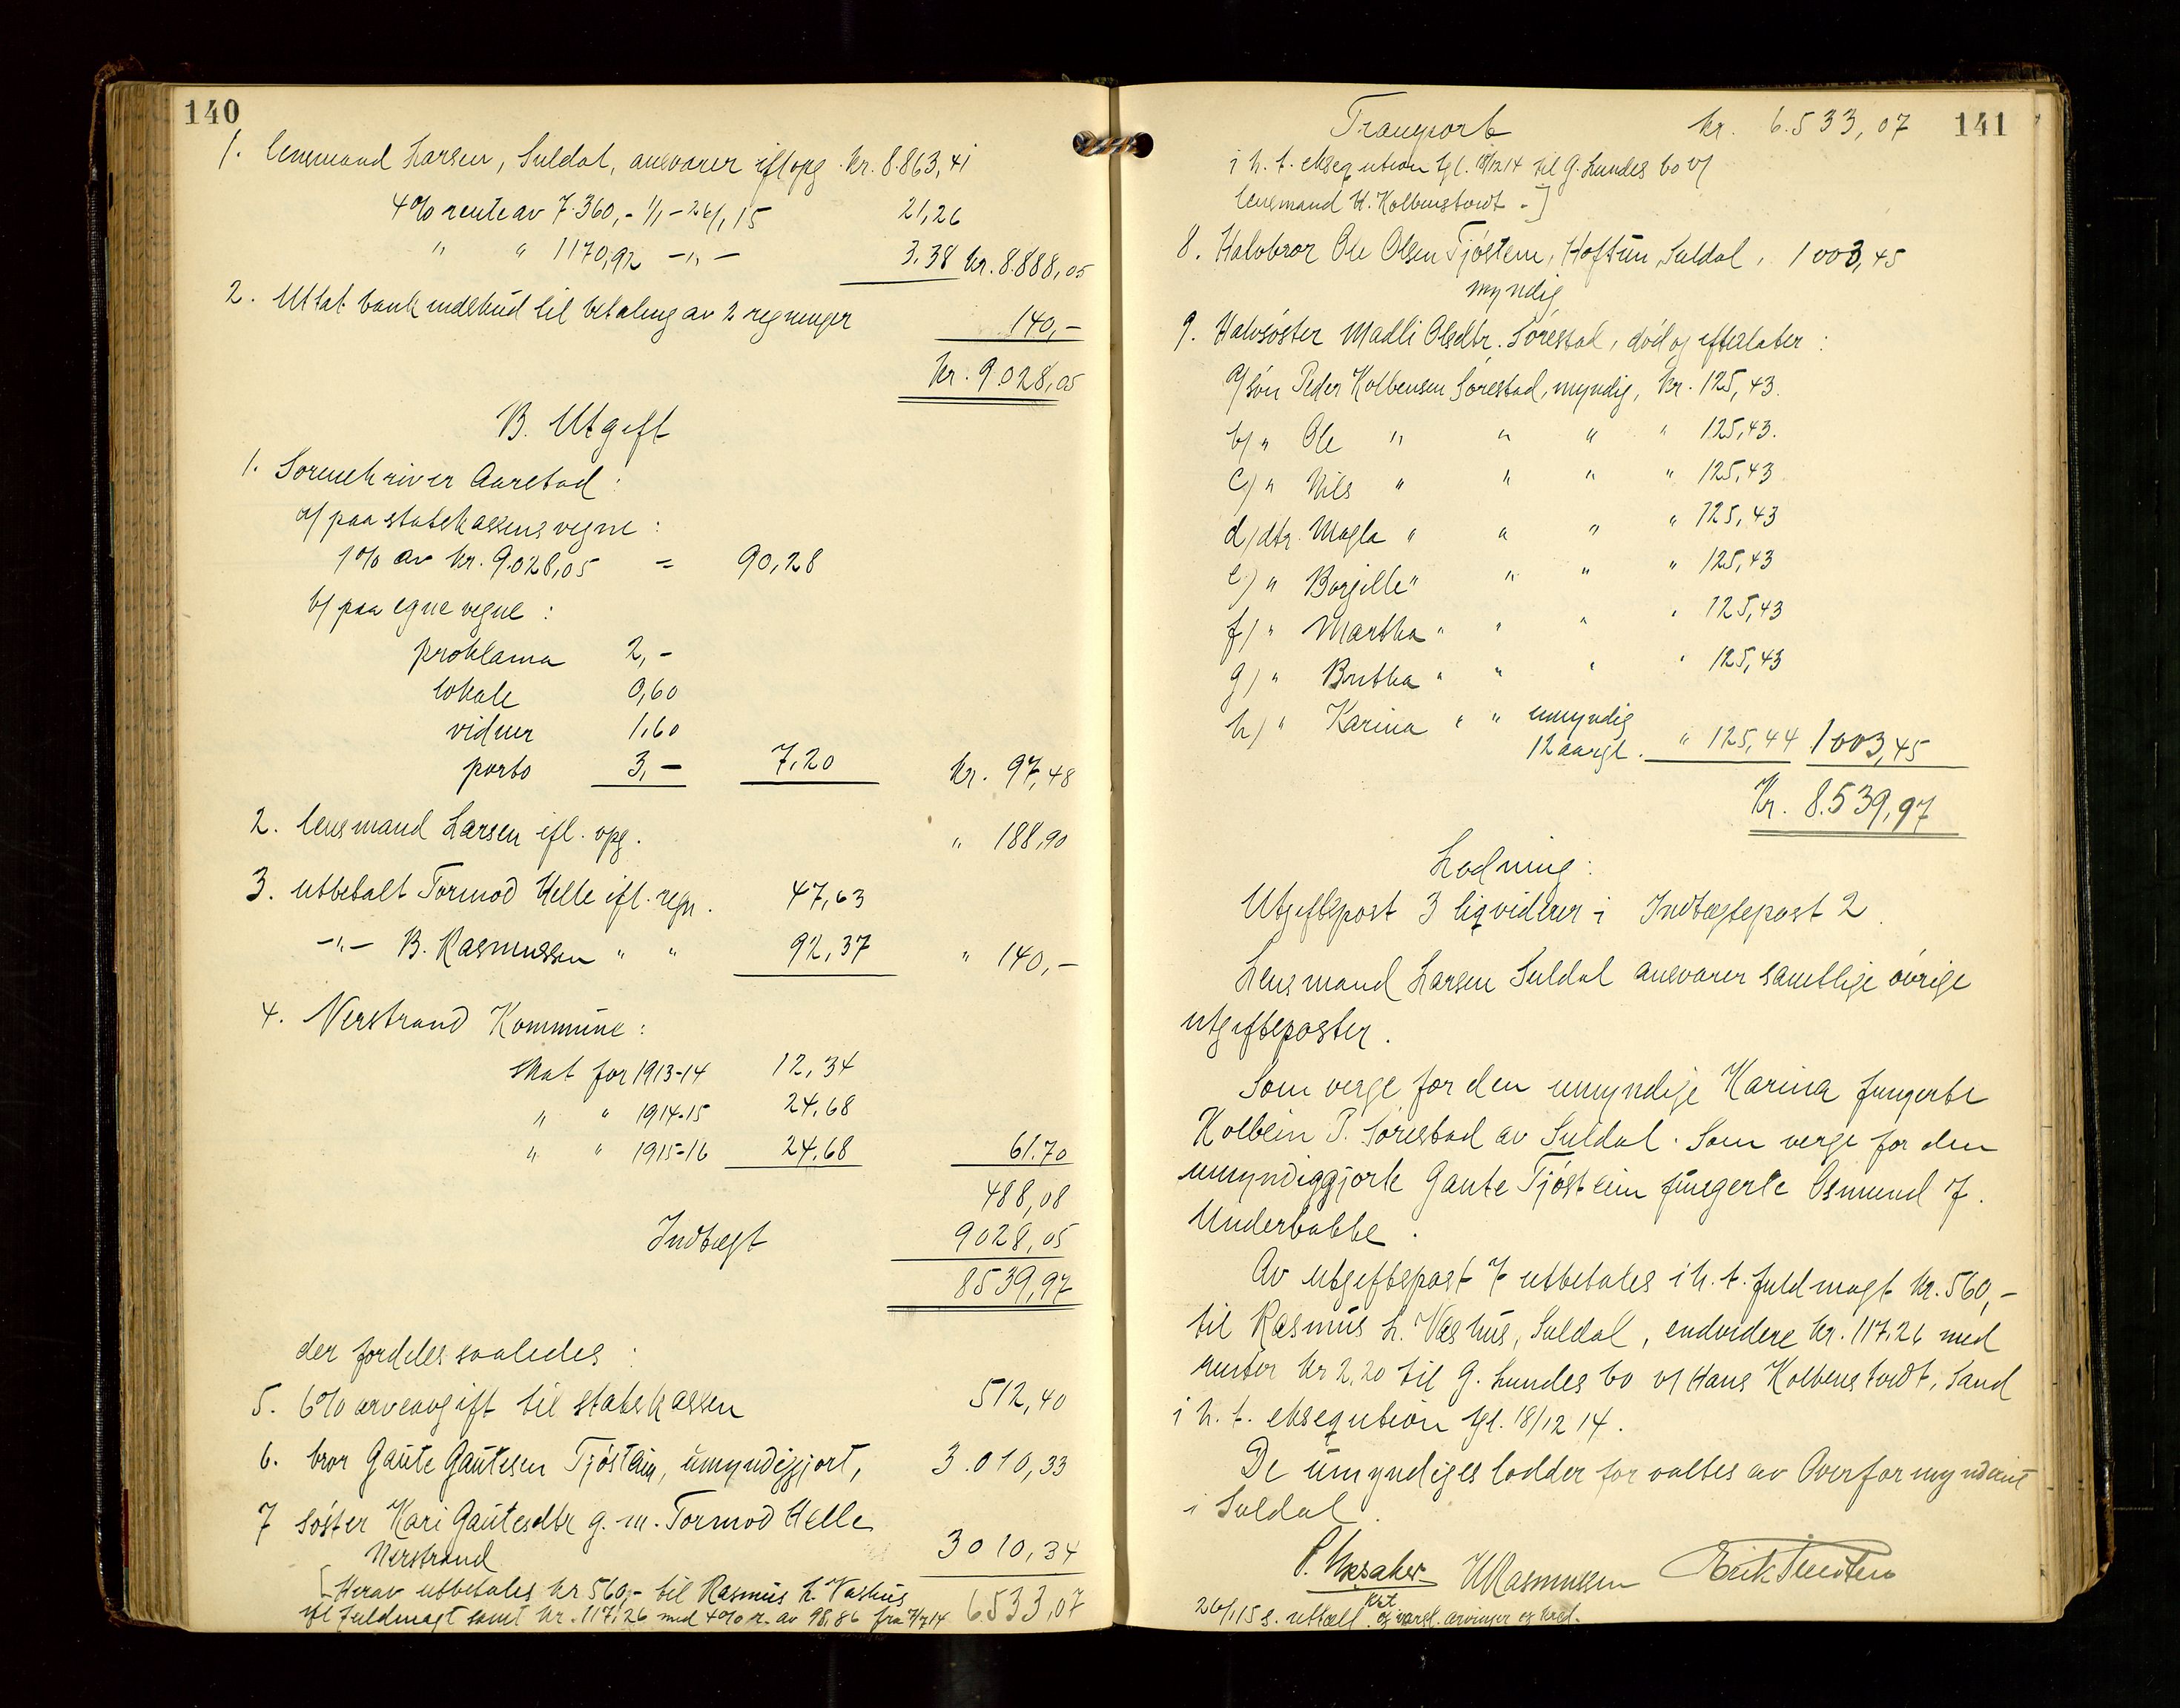 140
1. Lensmand Larsen, Suldal, ansvarer ifl opg. kr. 8.863,41
4% rente av 7.360,- 1/1 - 26/1 15 21,26
" " 1170,92 -"- 3,38 kr. 8.888,05
2. Uttat bankindskud til betaling av 2 regninger 140,-
kr. 9.028,05
B. Utgift
1. Sorenskriver Aarstad:
a/ paa statskassens vegne:
1% av kr. 9.028,05 = 90,28
b/ paa egne vegne:
proklama 2,-
lokale 0,60
vidner 1,60
porto 3,- 7,20 kr. 97,48
2. lensmand Larsen ifl. opg. " 188,90
3. utbetalt Tormod Helle ifl. regn. 47,63
-"- B. Rasmussen " " 92,37 " 140,-
4. Nerstrand Kommune:
Skat for 1913-14 12,34
" " 1914-15 24,68
" " 1915-16 24,68 61.70
488,08
Indtægt 9028,05
8539,97
der fordeles saaledes:
5. 6% arveavgift til statskassen 512,40
6. bror Gaute Gautesen Tjøstein, umyndiggjort, 3.010,33
7 søster Kari Gautesdtr g. m. Tormod Helle
Nerstrand 3010,34
[Herav utbetales kr 560,- til Rasmus L. Vashus
ifl fuldmagt samt kr. 117,26 med 4% r. av 98,86 fra 7/7 14 6.533,07
141
Transport kr. 6.533,07
i h. t. ekseqution tgl. 18/12 14 til G. Lundes bo v/
lensmand H. Kolbenstvedt -]
8. Halvbror Ole Olsen Tjøstem, Hoftun, Suldal, 1003,45
myndig
9. Halvsøster Madli Olsdtr. Sørestad, død og efterlater:
a/ søn Peder Kolbensen Sørestad, myndig, kr. 125,43.
b/ " Ole " " " " 125,43.
c/ " Nils " " " " 125,43
d/ dtr. Magla " " " " 125,43
e) " Borgille " " " " 125,43
f) " Martha " " " " 125,43
g) " Britha " " " " 125,43
h) " Karina " " umyndig
12 aargl. " 125,44 1003,45
Kr. 8.539,97
Lodning:
Utgiftspost 3 liqviderer i Indtægtspost 2.
Lensmand Larsen Suldal ansvarer samtlige øvrige
utgiftsposter.
Som verge for den umyndige Karina fungerte
Kolbein P. Sørestad av Suldal. Som verge for den
umyndiggjorte Gaute Tjøstein fungerte Osmund J.
Underbakke.
Av utgiftspost 7 utbetales i h. t. fuldmagt kr. 560,-
til Rasmus L. Vashus, Suldal, endvidere kr. 117,26 med
renter kr 2,20 til G. Lundes bo v/ Hans Kolbenstvedt, Sand
i h. t. ekseqution tgl. 18/12 14.
De umyndiges lodder forvaltes av Overformynderiet
i Suldal.
HRasmussen
26/1 15 s. utstedt og varsl. arvinger og kred.